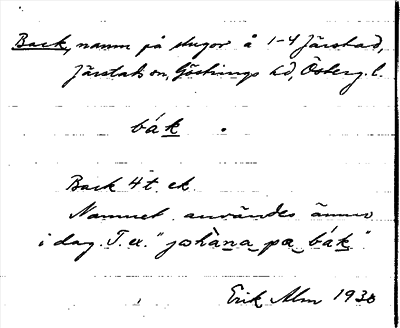 Back, namn på stugor å 1-4 Järstad,
Järstads sn, Göstrings hd, Österg. l.
bák
Back 4 t. ek.
Namnet användes ännu
i dag. T. ex. "johàna pa bák"
Erik Alm 1930